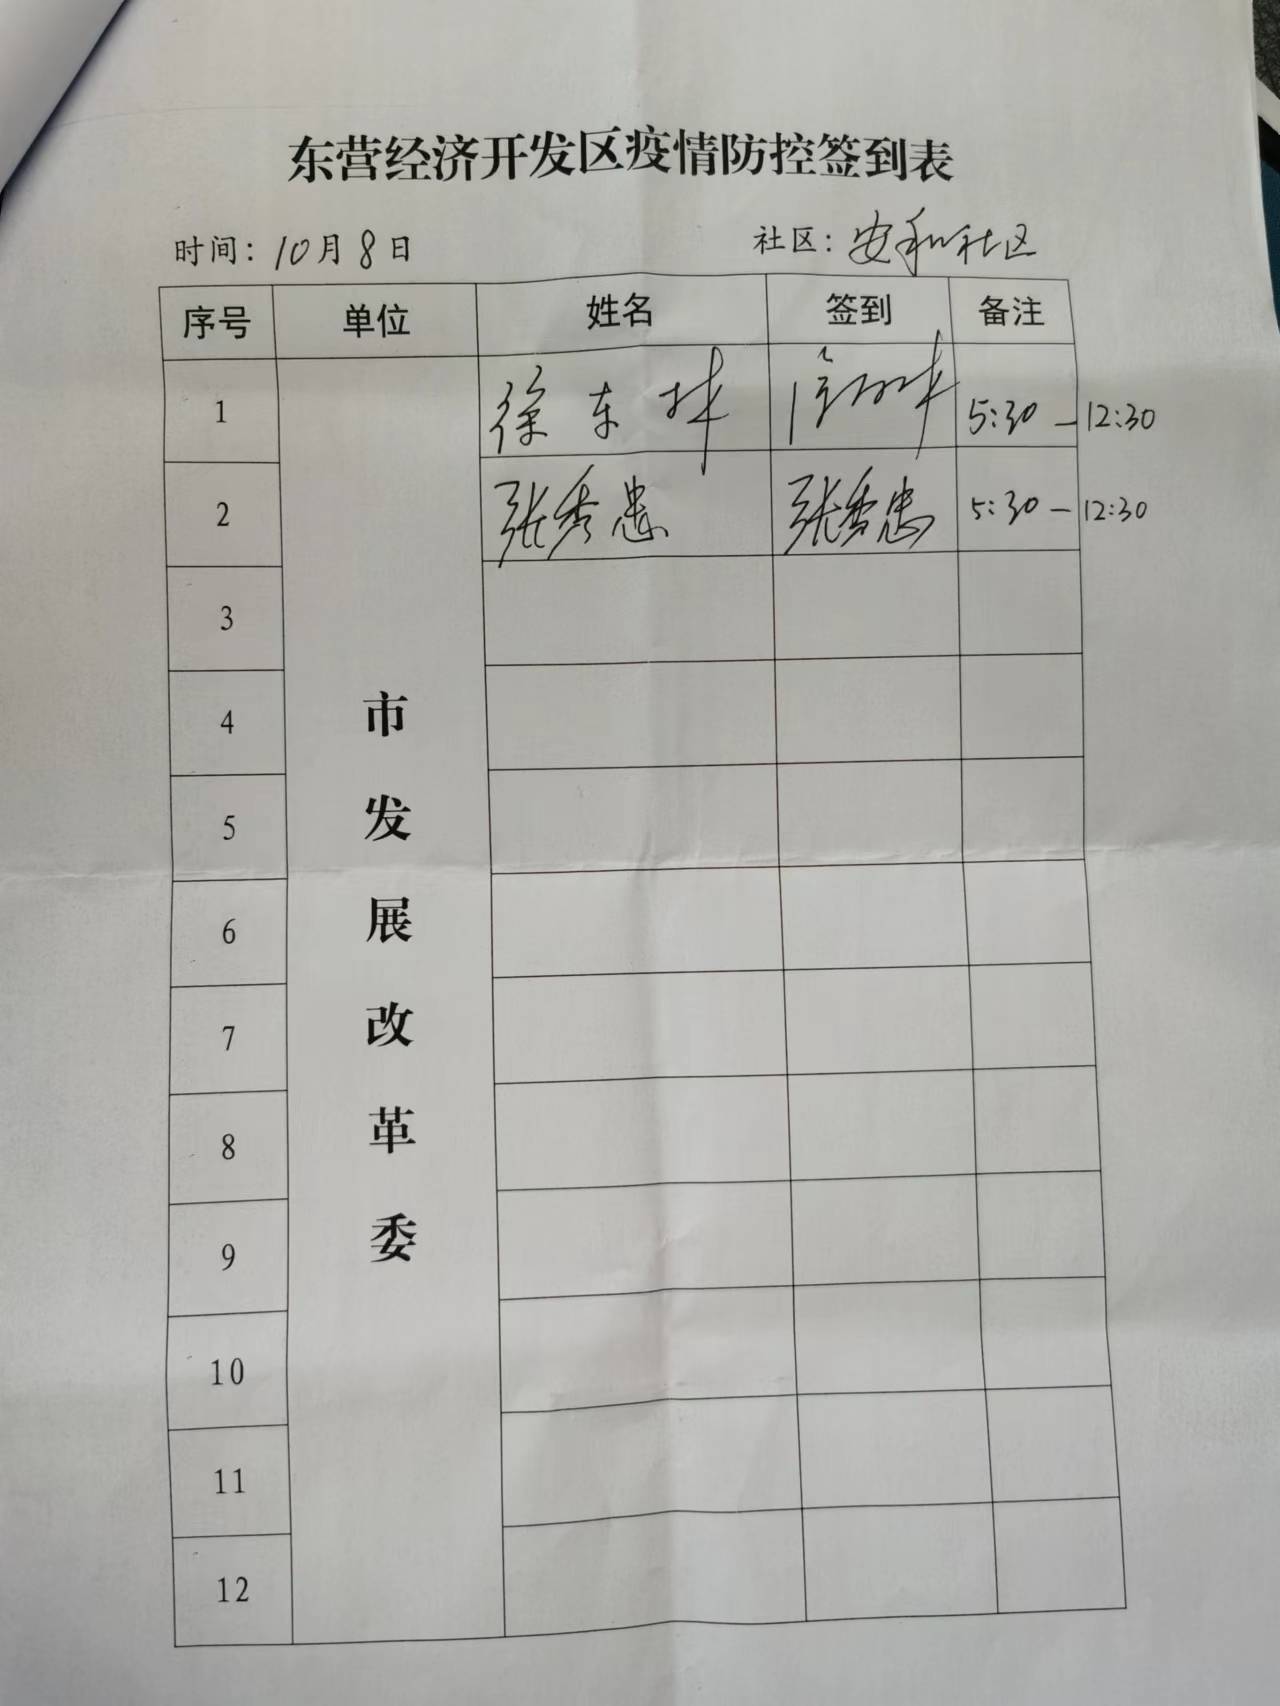 东营经济开发区疫情防控签到表
时间：10月8日 社区：安和社区
序号 单位 姓名 签到 备注
1 徐东林 5:30-12:30
2 张秀忠 张秀忠 5:30-12:30
3
4
5
6
7
8
9
10
11
12
市发展改革委